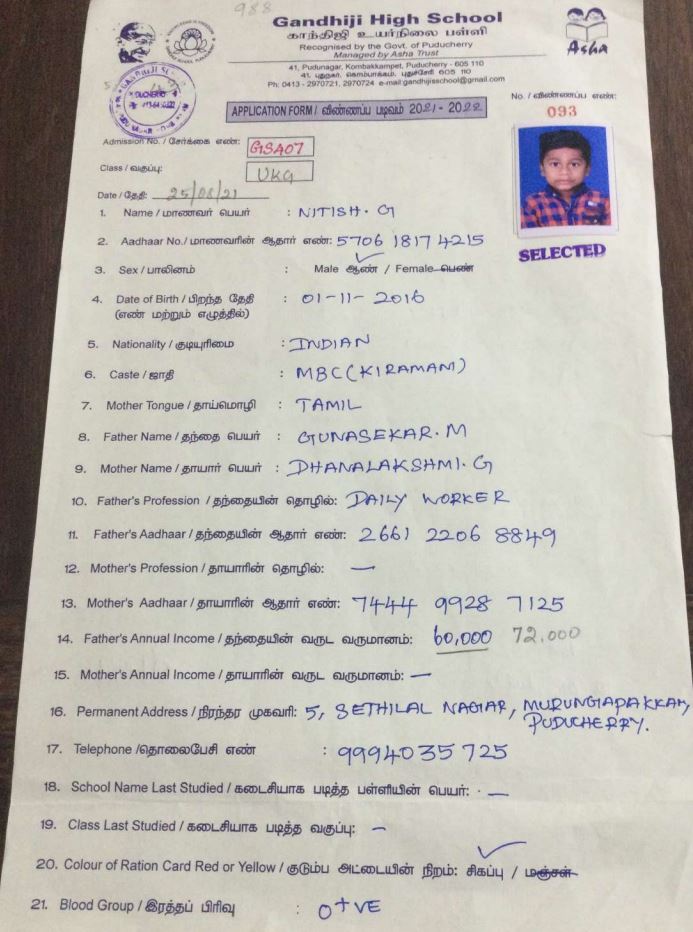 988
Gandhiji High School
காந்திஜி உயர்நிலை பள்ளி
Recognised by the Govt. of Puducherry
Managed by Asha Trust
Asha
41, Pudunagar, Kombakkampet, Puducherry - 605 110
41, புதுநகர், கொம்பாக்கம், புதுச்சேரி 605 110
Ph: 0413 - 2970721, 2970724 e-mail:gandhijisschool@gmail.com
APPLICATION FORM / விண்ணப்ப படிவம் 2021 - 2022
No. / விண்ணப்ப எண்:
093
Admission No. / சேர்க்கை எண்: GSA07
Class / வகுப்பு: UKG
Date / தேதி: 25/08/21
SELECTED
1. Name / மாணவர் பெயர் : NITISH. G
2. Aadhaar No./ மாணவரின் ஆதார் எண்: 5706 1817 4215
3. Sex / பாலினம் : Male ஆண் / Female பெண்
4. Date of Birth / பிறந்த தேதி : 01-11-2016
(எண் மற்றும் எழுத்தில்)
5. Nationality / குடியுரிமை : INDIAN
6. Caste / ஜாதி : MBC (KIRAMANI)
7. Mother Tongue / தாய்மொழி : TAMIL
8. Father Name / தந்தை பெயர் : GUNASEKAR. M
9. Mother Name / தாயார் பெயர் : DHANALAKSHMI. G
10. Father's Profession / தந்தையின் தொழில்: DAILY WORKER
11. Father's Aadhaar / தந்தையின் ஆதார் எண்: 2661 2206 8849
12. Mother's Profession / தாயாரின் தொழில்: —
13. Mother's Aadhaar / தாயாரின் ஆதார் எண்: 7444 9928 7125
14. Father's Annual Income / தந்தையின் வருட வருமானம்: 60,000 72.000
15. Mother's Annual Income / தாயாரின் வருட வருமானம்: —
16. Permanent Address / நிரந்தர முகவரி: 5, SETHILAL NAGAR, MURUNGAPAKKAM,
PUDUCHERRY.
17. Telephone /தொலைபேசி எண் : 9994035725
18. School Name Last Studied / கடைசியாக படித்த பள்ளியின் பெயர்: —
19. Class Last Studied / கடைசியாக படித்த வகுப்பு: —
20. Colour of Ration Card Red or Yellow / குடும்ப அட்டையின் நிறம்: சிகப்பு / மஞ்சள்
21. Blood Group / இரத்தப் பிரிவு : O+VE